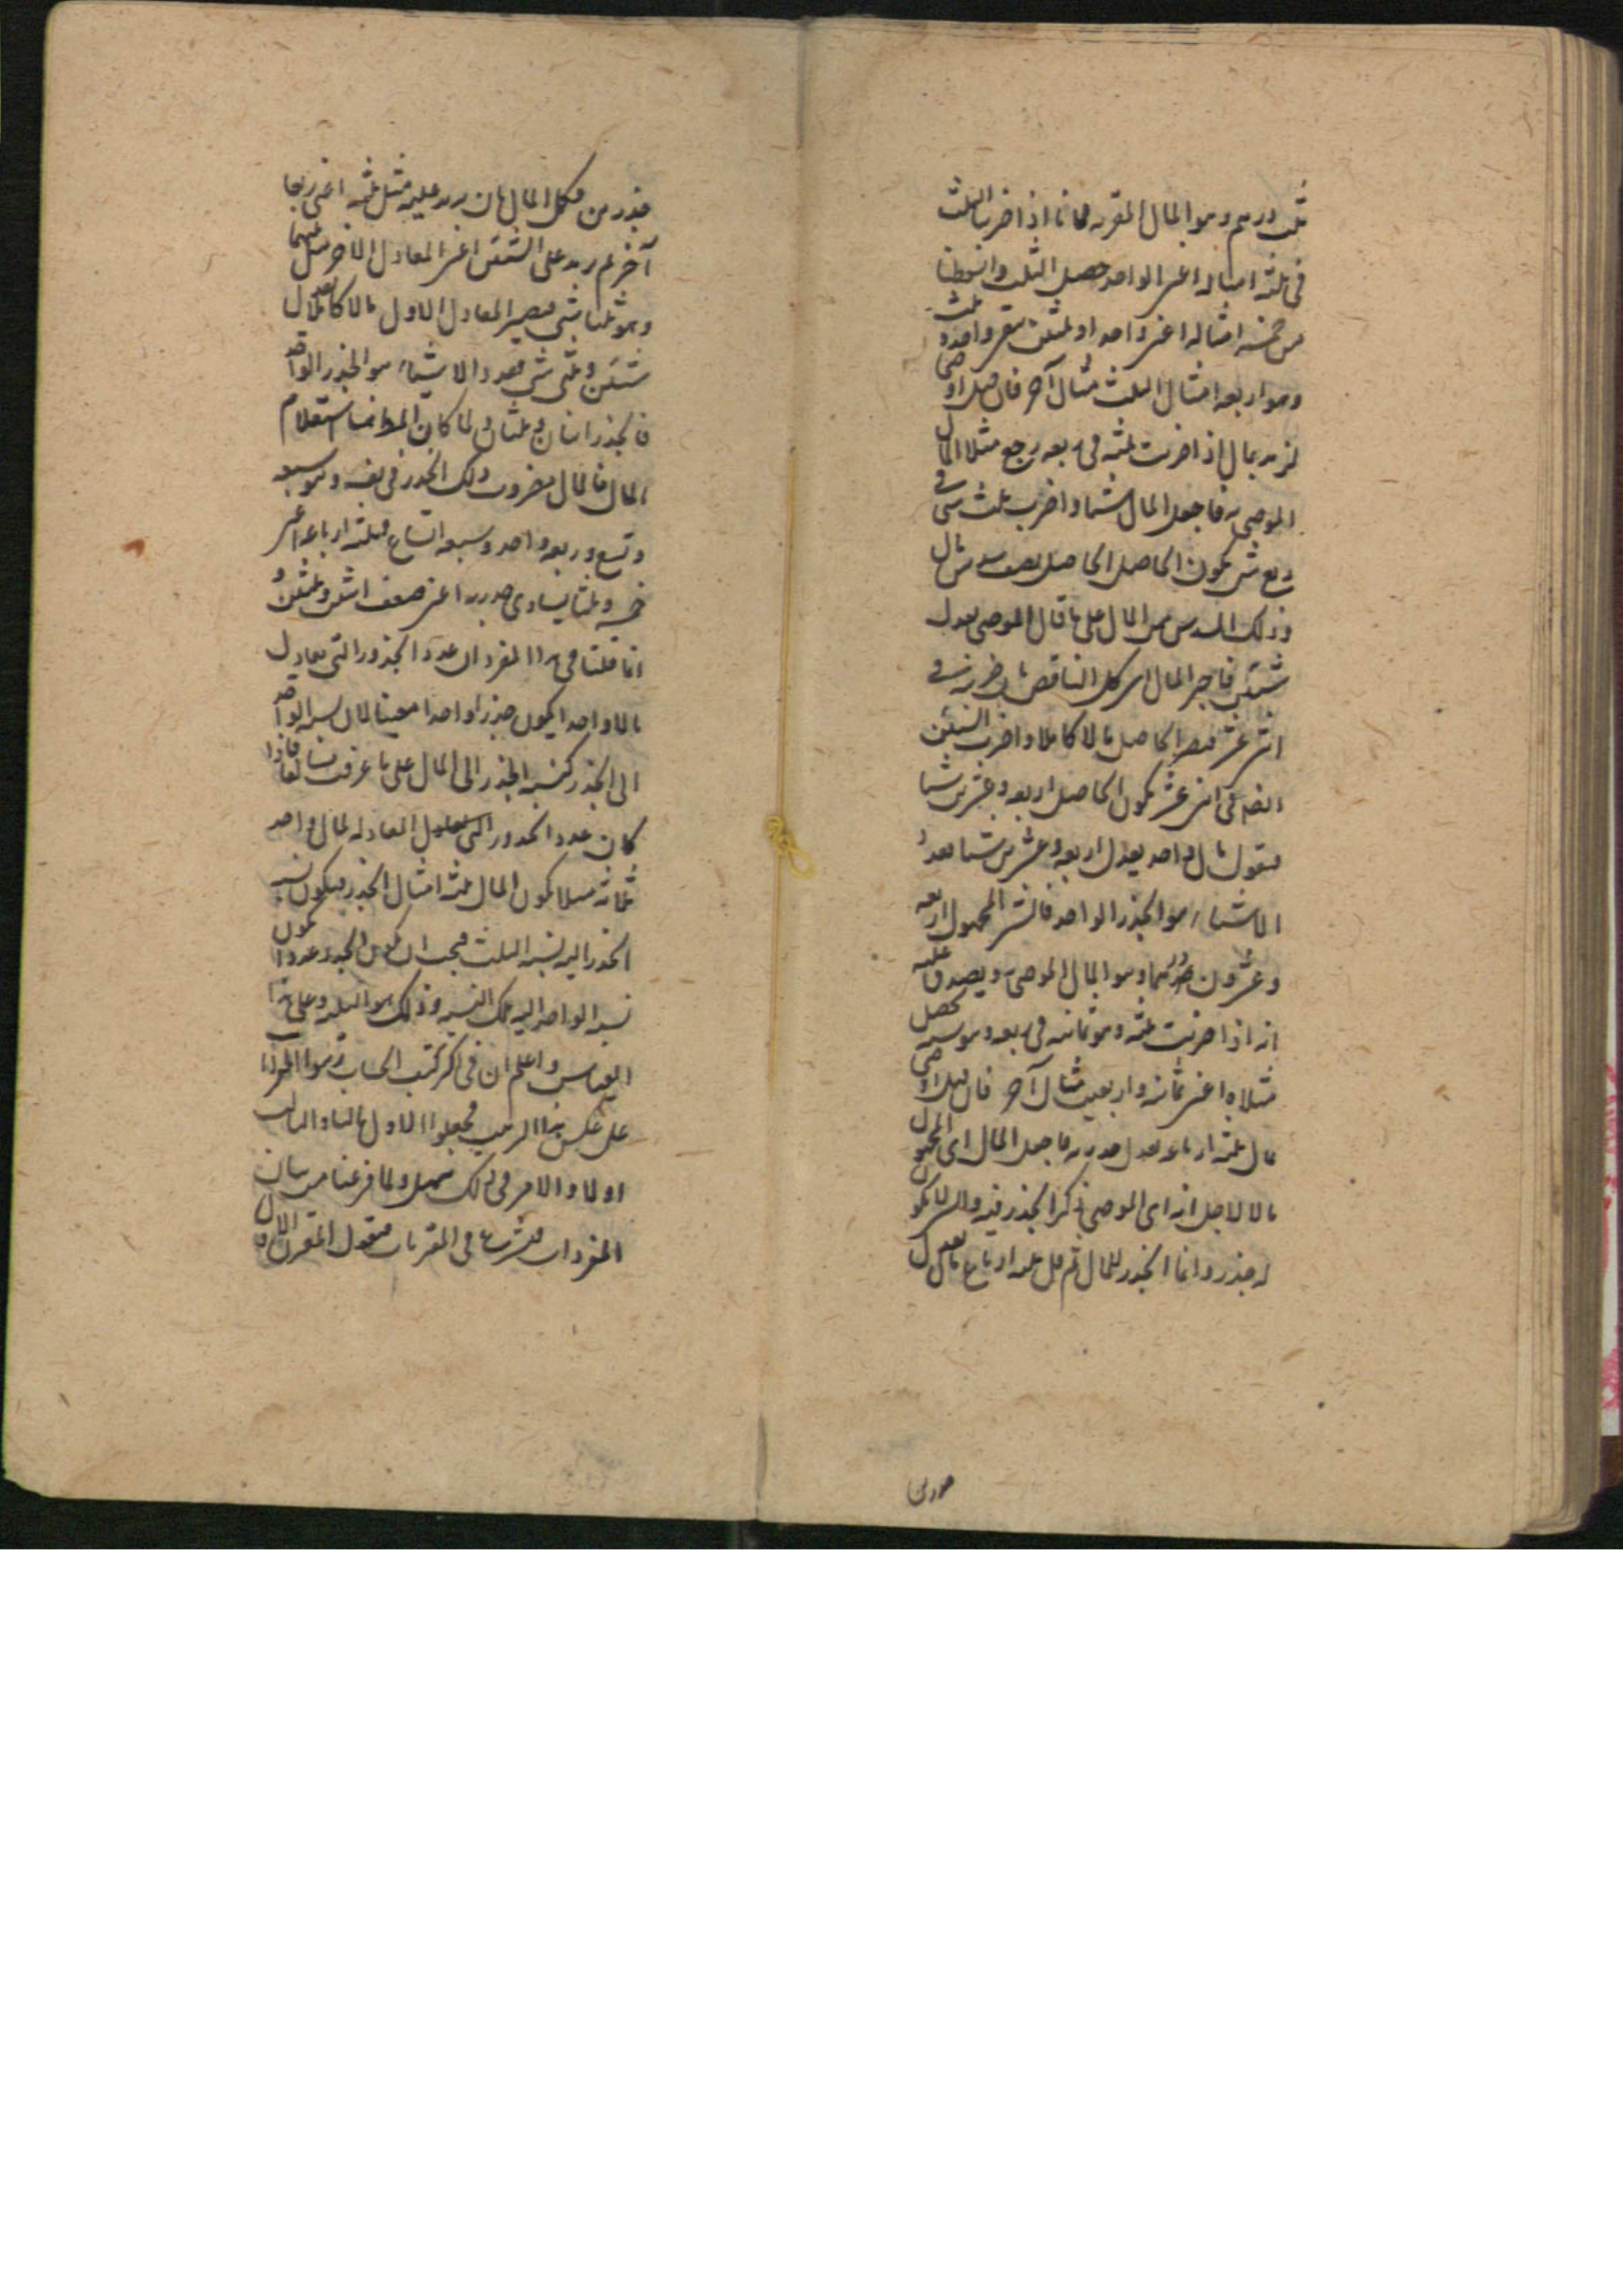 ثلث درهم وهو المال المقر به فانا اذا ضربنا الثلث
فى ثلثة امثاله اعنى الواحد حصل الثلث واذا
من خمسة امثاله اعنى واحدا وثلثين بقى واحد وثلث
وهو اربعة امثال الثلث مثال آخر فان قيل اوصى
لزيد بمال اذا ضربت ثلثه فى ربعه رجع مثلا المال
الموصى به فاجعل المال شيئا واضرب ثلث شئ فى
ربع شئ يكون الحاصل نصف سدس مال
وذلك السدس من المال على ما قال الموصى يعدل
شيئين فاجبر المال اى كمل الناقص بان ضربته فى
اثنى عشر فيصير الحاصل مالا كاملا واضرب الشيئين
ايضا فى اثنى عشر يكون الحاصل اربعة وعشرين شيئا
فنقول مال واحد يعدل اربعة وعشرين شيئا فعدد
الاشياء هو الجذر الواحد فالشئ المجهول اربعة
وعشرون درهما وهو المال الموصى به ويصدق عليه
انه اذا ضربت ثلثه وهو ثمانية فى ربعه وهو ستة يحصل
مثلاه اعنى ثمانية واربعين مثال آخر فان قيل اوصى
مال ثلثة ارباعه يعدل جذريه فاجعل المال اى المجهول
مالا لاجل انه اى الموصى ذكر الجذر فيه والشئ لا يكون
له جذر وانما الجذر للمال ثم قل ثلثة ارباع مال يعدل
جذرين
جذرين فكمل المال بان يزيد عليه مثل ثلثه اعنى ربعا
آخر ثم زد على الشيئين اعنى المعادل الآخر مثل ثلثهما
وهو ثلثا شئ فيصير المعادل الاول مالا كاملا يعدل
شيئين وثلثى شئ فعدد الاشياء هو الجذر الواحد
فالجذر اثنان وثلثان ولما كان المط استعلام
المال فالمال مضروب ذلك الجذر فى نفسه وهو سبعة
وتسع وربعه واحد وسبعة اتساع فثلثة ارباعه اعنى
خمسة وثلثا يساوى جذريه اعنى ضعف اثنين وثلثين و
انما قلنا فى هذا المفرد ان عدد الجذور التى يعادل
مالا واحدا يكون جذرا واحدا معينا لمال نسبة الواحد
الى الجذر كنسبة الجذر الى المال على ما عرفت فاذا
كان عدد الجذور المعادلة لمال واحد
ثلثة مثلا يكون المال ثلثة امثال الجذر فيكون نسبة
الجذر اليه نسبة الثلث فيجب ان يكون الجذر عددا يكون
نسبة الواحد اليه تلك النسبة وذلك هو الثلثة وعلى هذا
القياس واعلم ان فى اكثر كتب الحساب قدموا المفردات
على عكس هذا الترتيب فجعلوا الاول ثالثا والثالث
اولا والامر فى ذلك سهل ولما فرغنا من بيان
المفردات فلنشرع فى المقترنات فنقول المقترن الاول